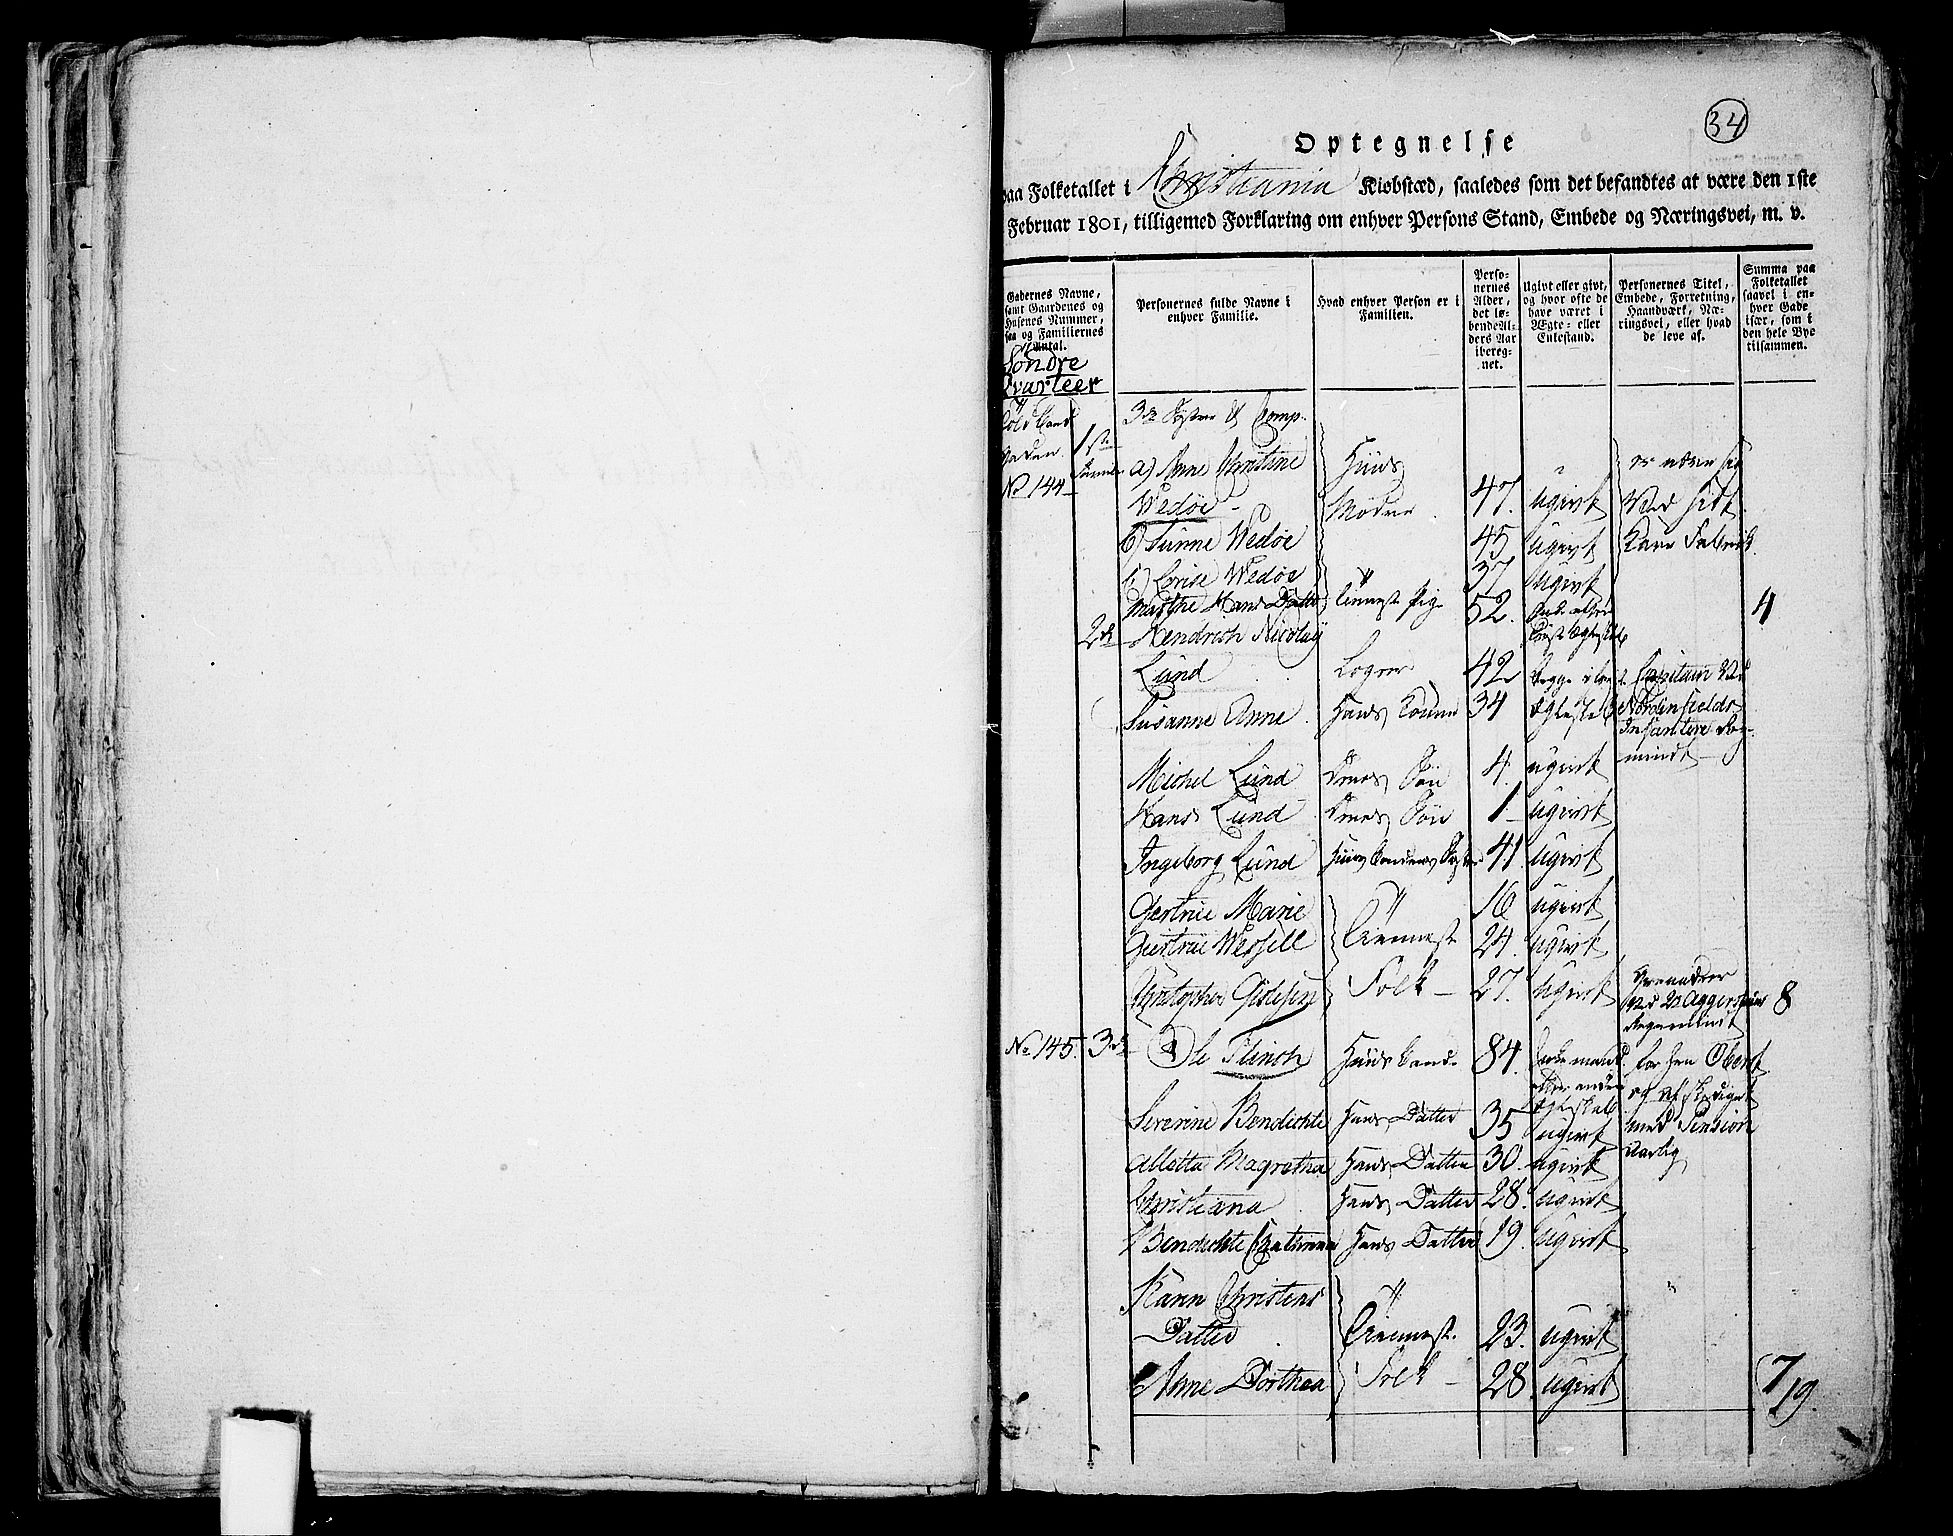 34
Optegnelse
paa Folketallet i Christiania Kiøbstæd, saaledes som det befandtes at være den 1ste
Februar 1801, tilligemed Forklaring om enhver Persons Stand, Embede og Næringsvei, m. v.
Gadernes Navne, samt Gaardenes og Husenes Nummer, saa og Familiernes Antal.
Personernes fulde Navne i enhver Familie.
Hvad enhver Person er i Familien.
Personernes Alder, det løbende Alders Aar iberegnet.
Ugivt eller givt, og hvor ofte de have været i Ægte- eller Enkestand.
Personernes Titel, Embede, Forretning, Haandværk, Næringsvei, eller hvad de leve af.
Summa paa Folketallet saavel i enhver Gade især, som i den hele Bye tilsammen.
Søndre
Qvarteer
3de Søstre & Comp.
Gaden 1ste
No 144 a) Anne Christine Huus
Wedøe Mødre 47. ugivt ved
b) Sunne Wedøe 45 ugivt Fabrik.
c) Lovise Wedøe 37 ugivt
Marthe Hans Datter Tienneste Pige 52. 4
2de Hendrich Nicolay
Lund Logerer 42 Begge i Capitain ved
Susanne Anne Hans Kone 34 Nordenfields
Infanterie Regimendt
Michel Lund Deres Søn 4. ugivt
Hans Lund Deres Søn 1 ugivt
Ingeborg Lund Huus Bondens Søster 41. ugivt
Gertrue Marie 16 ugivt
Giertrue Wessell Tienneste 24. ugivt
Christopher Folk 27. ugivt ved 2 Aggershuus 8
Regemendt
No 145. 3de Ole Huus Bonde 84.
Oberst
Severine Bendichte Hans Datter 35 ugivt med Pension
Alletta Magretha Hans Datter 30. ugivt aarlig
Christiana Hans Datter 28. ugivt
Bendichte Cathrina Hans Datter 19. ugivt
Karen Christens
Datter Tienneste 23. ugivt
Anne Dorthea Folk 28. ugivt 7
19.